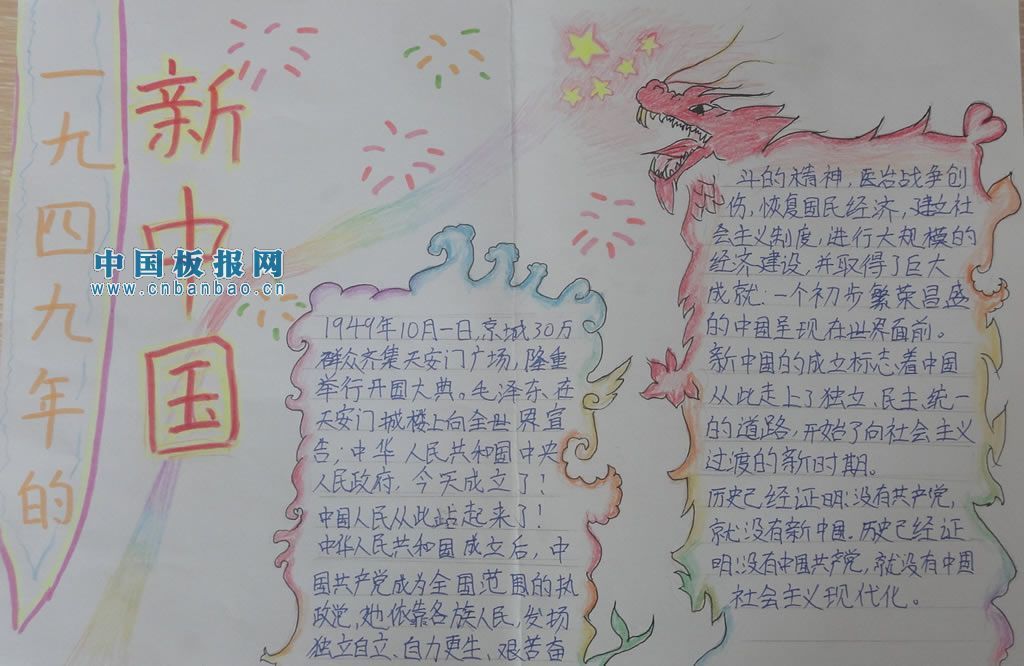 一九四九年的
新中国
中国板报网
www.cnbanbao.cn
1949年10月一日,京城30万
群众齐集天安门广场,隆重
举行开国大典。毛泽东在
天安门城楼上向全世界宣
告:中华人民共和国中央
人民政府,今天成立了!
中国人民从此站起来了!
中华人民共和国成立后,中
国共产党成为全国范围的执
政党,她依靠各族人民,发扬
独立自立、自力更生、艰苦奋
斗的精神,医治战争创
伤,恢复国民经济,建立社
会主义制度,进行大规模的
经济建设,并取得了巨大
成就:一个初步繁荣昌盛
的中国呈现在世界面前。
新中国的成立标志着中国
从此走上了独立、民主、统一
的道路,开始了向社会主义
过渡的新时期。
历史已经证明:没有共产党,
就没有新中国。历史已经证
明:没有中国共产党,就没有中国
社会主义现代化。